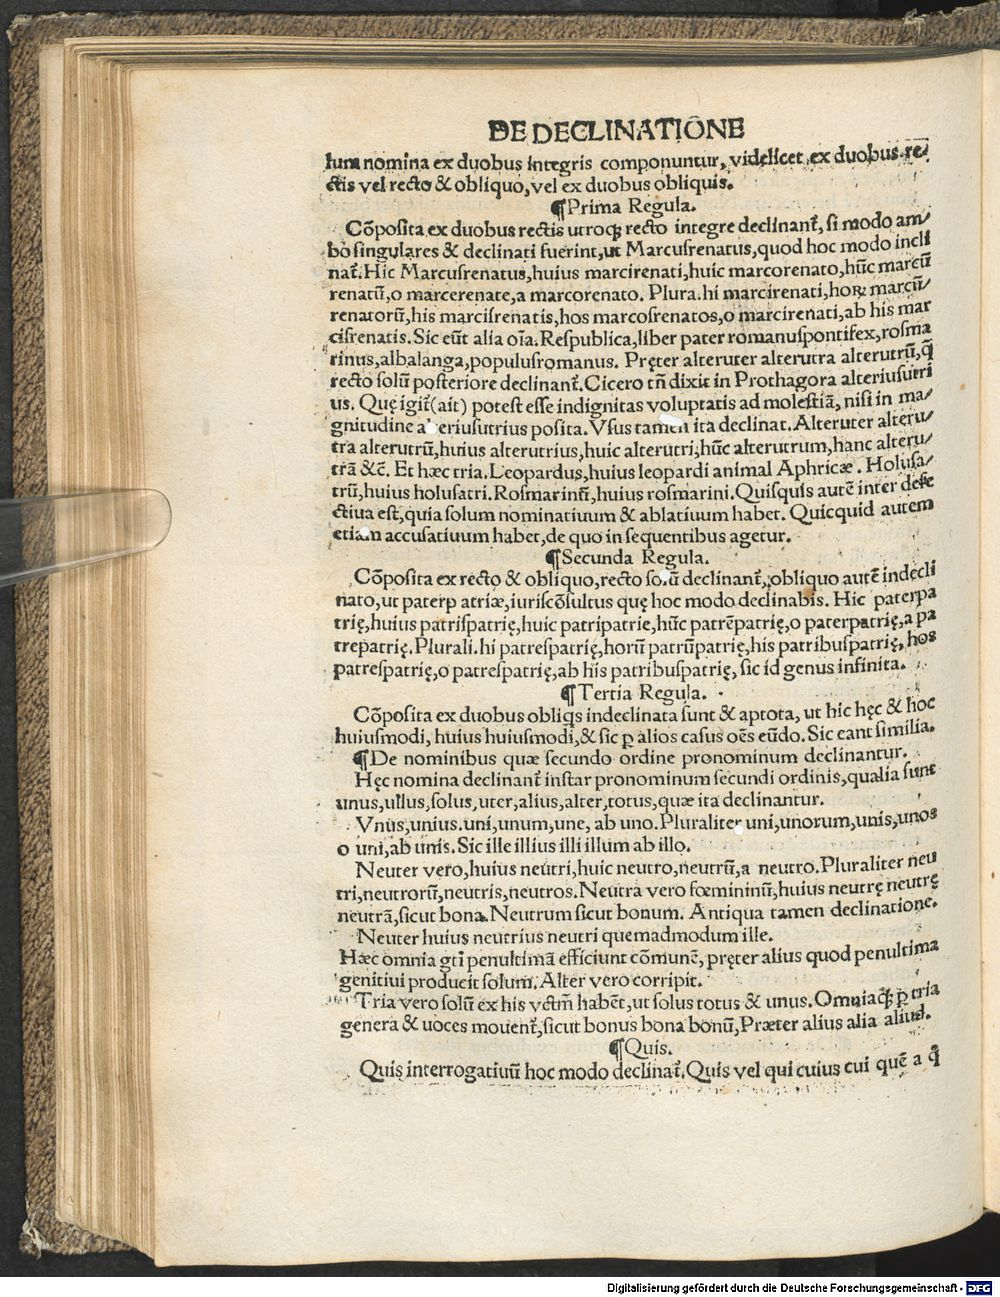 DE DECLINATIONE
tum nomina ex duobus integris componuntur, videlicet ex duobus re/
ctis vel recto & obliquo, vel ex duobus obliquis.
¶Prima Regula.
Cōposita ex duobus rectis utroq; recto integre declinant᷑, si modo am/
bo singulares & declinati fuerint, ut Marcusrenatus, quod hoc modo incli
nat᷑. Hic Marcusrenatus, huius marcirenati, huic marcorenato, hūc marcū
renatū, o marcerenate, a marcorenato. Plura. hi marcirenati, horꝝ marcū/
renatorū, his marcisrenatis, hos marcosrenatos, o marcirenati, ab his mar
cisrenatis. Sic eūt alia oīa. Respublica, liber pater romanuspontifex, rosma
rinus, albalanga, populusromanus. Pręter alteruter alterutra alterutrū, q̄
recto solū posteriore declinant᷑. Cicero tñ dixit in Prothagora alteriusutri
us. Quę igit᷑ (ait) potest esse indignitas voluptatis ad molestiā, nisi in ma/
gnitudine a eriusutrius posita. Vsus tamen ita declinat. Alteruter alteru/
tra alterutrū, huius alterutrius, huic alterutri, hūc alterutrum, hanc alteru/
trā &c̄. Et hæc tria. Leopardus, huius leopardi animal Aphricæ. Holusa/
trū, huius holusatri. Rosmarinū, huius rosmarini. Quisquis autē inter defe
ctiua est, quia solum nominatiuum & ablatiuum habet. Quicquid autem
etiam accusatiuum habet, de quo in sequentibus agetur.
¶Secunda Regula.
Cōposita ex recto & obliquo, recto solū declinant᷑, obliquo autē indecli
nato, ut paterp atriæ, iuriscōsultus quę hoc modo declinabis. Hic paterpa
trię, huius patrispatrię, huic patripatrie, hūc patrēpatrię, o paterpatrię, a pa
trepatrię. Plurali. hi patrespatrię, horū patrūpatrię, his patribuspatrię, hos
patrespatrię, o patrespatrię, ab his patribuspatrię, sic id genus infinita.
¶Tertia Regula.
Cōposita ex duobus obliqs indeclinata sunt & aptota, ut hic hęc & hoc
huiusmodi, huius huiusmodi, & sic ꝑ alios casus oēs eūdo. Sic eant similia.
¶De nominibus quæ secundo ordine pronominum declinantur.
Hęc nomina declinant᷑ instar pronominum secundi ordinis, qualia sunt
unus, ullus, solus, uter, alius, alter, totus, quæ ita declinantur.
Vnus, unius. uni, unum, une, ab uno. Pluraliter uni, unorum, unis, unos
o uni, ab unis. Sic ille illius illi illum ab illo.
Neuter vero, huius neutri, huic neutro, neutrū, a neutro. Pluraliter neu
tri, neutrorū, neutris, neutros. Neutra vero fœmininū, huius neutrę neutrę
neutrā, sicut bona. Neutrum sicut bonum. Antiqua tamen declinatione.
Neuter huius neutrius neutri quemadmodum ille.
Hæc omnia gti penultimā efficiunt cōmunē, pręter alius quod penultima
genitiui producit solum. Alter vero corripit.
Tria vero solū ex his vctm̄ habēt, ut solus totus & unus. Omniaq; ꝑ tria
genera & uoces mouent᷑, sicut bonus bona bonū, Præter alius alia aliud.
¶Quis.
Quis interrogatiuū hoc modo declinat᷑. Quis vel qui cuius cui quē a q̄
Digitalisierung gefördert durch die Deutsche Forschungsgemeinschaft - DFG